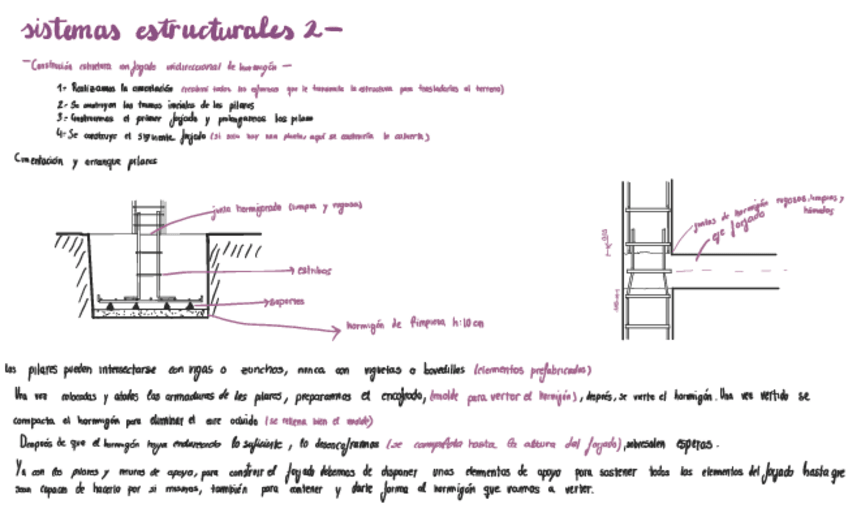 sistemas estructurales 2-
- Construcción estructura con forjado unidireccional de hormigón -
1- Realizamos la cimentación (recibirá todos los esfuerzos que le transmite la estructura para trasladarlos al terreno)
2- Se construyen los tramos iniciales de los pilares
3- Construimos el primer forjado y prolongamos los pilares
4- Se construye el siguiente forjado (si solo hay una planta, aquí se construiría la cubierta)
Cimentación y arranque pilares
junta hormigonado (limpia y rugosa)
juntas de hormigón rugosas, limpias y húmedas
eje forjado
estribos
soportes
hormigón de limpieza h:10cm
Los pilares pueden intersectarse con vigas o zunchos, nunca con viguetas o bovedillas (elementos prefabricados)
Una vez colocadas y atadas las armaduras de los pilares, preparamos el encofrado, (molde para verter el hormigón), después, se vierte el hormigón. Una vez vertido se
compacta el hormigón para eliminar el aire ocluido (se rellena bien el molde)
Después de que el hormigón haya endurecido lo suficiente, lo desencoframos (se completa hasta la altura del forjado), sobresalen esperas.
Ya con los pilares y muros de apoyo, para construir el forjado debemos de disponer unos elementos de apoyo para sostener todos los elementos del forjado hasta que
sean capaces de hacerlo por si mismos, también para contener y darle forma al hormigón que vamos a verter.